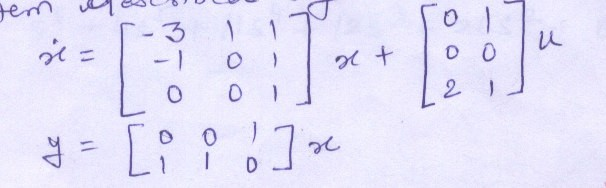 ẋ = [ -3 1 1 ; -1 0 1 ; 0 0 1 ] x + [ 0 1 ; 0 0 ; 2 1 ] u
y = [ 0 0 1 ; 1 1 0 ] x